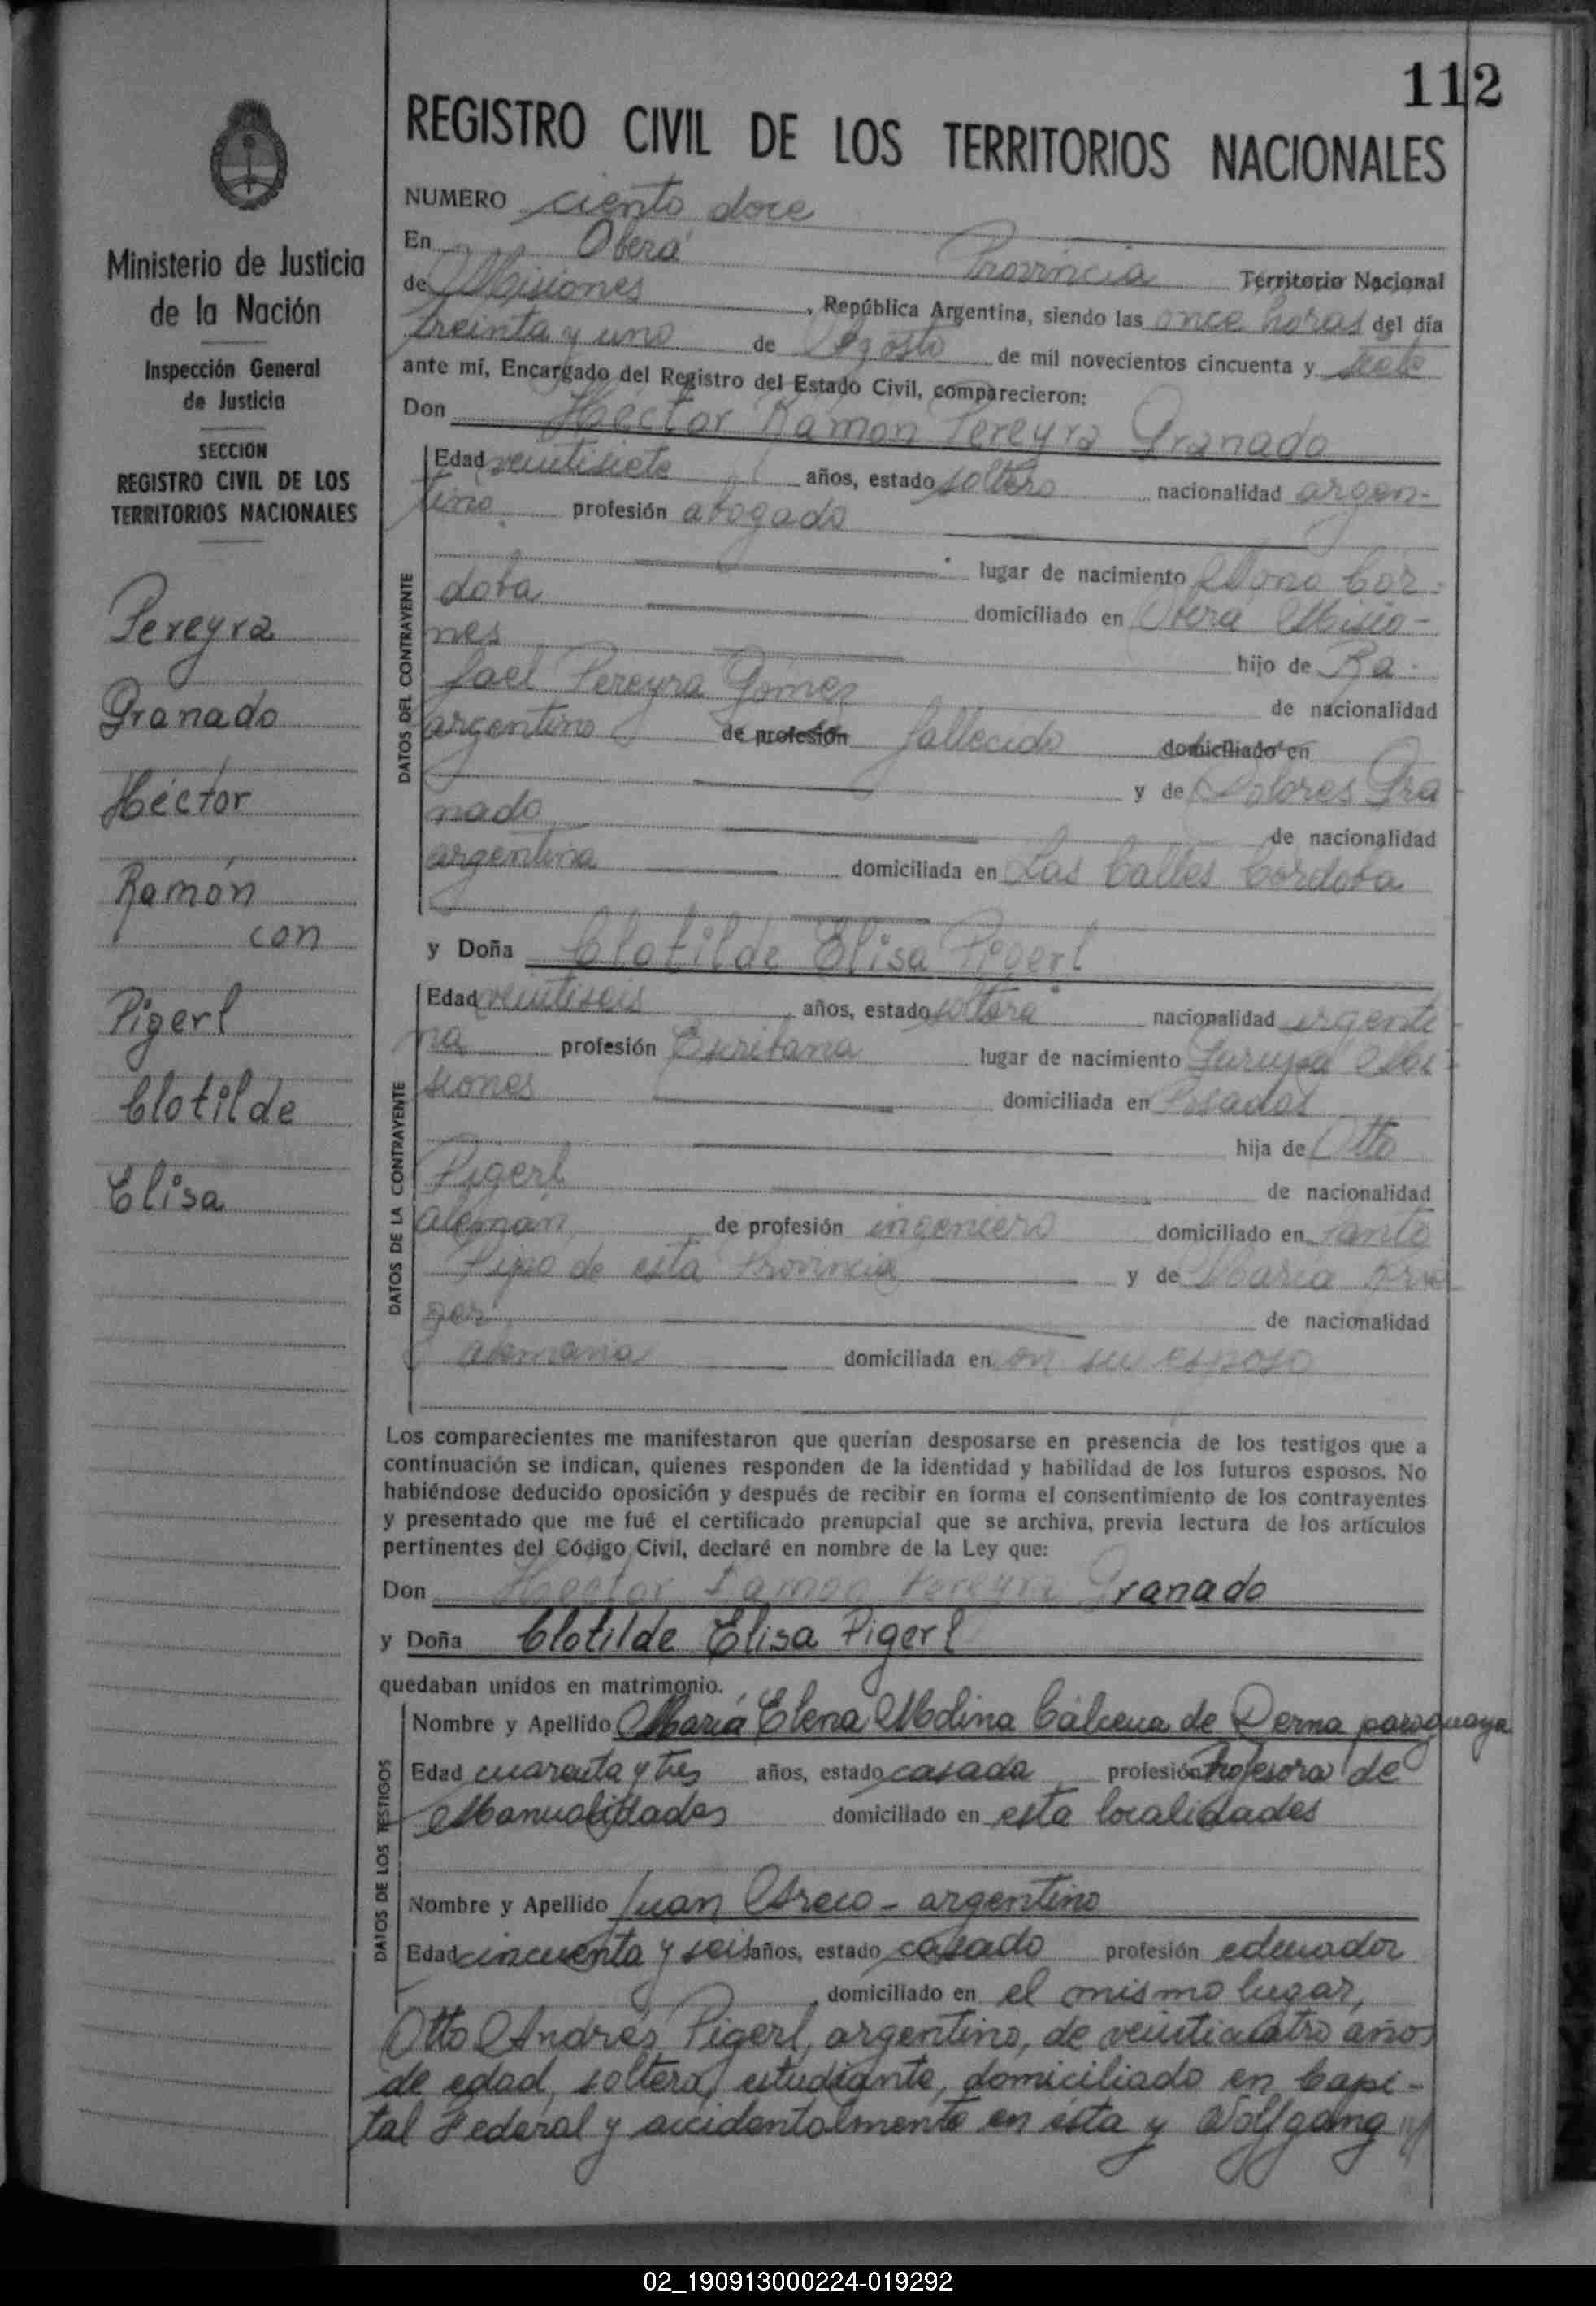 112
REGISTRO CIVIL DE LOS TERRITORIOS NACIONALES
Ministerio de Justicia
de la Nación
Inspección General
de Justicia
SECCION
REGISTRO CIVIL DE LOS
TERRITORIOS NACIONALES
Pereyra
Granado
Héctor
Ramón
con
Pigerl
Clotilde
Elisa
NUMERO ciento doce
En Oberá Provincia Territorio Nacional
de Misiones, República Argentina, siendo las once horas del día
treinta y uno de Agosto de mil novecientos cincuenta y siete
ante mí, Encargado del Registro del Estado Civil, comparecieron:
Don Héctor Ramón Pereyra Granado
DATOS DEL CONTRAYENTE
Edad veintisiete años, estado soltero nacionalidad argen-
tino profesión abogado
lugar de nacimiento Cór-
doba domiciliado en Oberá Misio-
nes hijo de Ra-
fael Pereyra Gómez de nacionalidad
argentino de profesión fallecido domiciliado en
y de Dolores Gra
nado de nacionalidad
argentina domiciliada en Las Calles Córdoba
y Doña Clotilde Elisa Pigerl
DATOS DE LA CONTRAYENTE
Edad veintiseis años, estado soltera nacionalidad argenti-
na profesión Escribana lugar de nacimiento Mi-
siones domiciliada en Posadas
hija de Otto
Pigerl de nacionalidad
alemán de profesión ingeniero domiciliado en Santo
Pipó de esta Provincia y de María
de nacionalidad
alemana domiciliada en su esposo
Los comparecientes me manifestaron que querían desposarse en presencia de los testigos que a
continuación se indican, quienes responden de la identidad y habilidad de los futuros esposos. No
habiéndose deducido oposición y después de recibir en forma el consentimiento de los contrayentes
y presentado que me fué el certificado prenupcial que se archiva, previa lectura de los artículos
pertinentes del Código Civil, declaré en nombre de la Ley que:
Don Hector Ramon Pereyra Granado
y Doña Clotilde Elisa Pigerl
quedaban unidos en matrimonio.
DATOS DE LOS TESTIGOS
Nombre y Apellido María Elena Molina Cálcena de Derna paraguaya
Edad cuarenta y tres años, estado casada profesión Profesora de
Manualidades domiciliado en esta localidades
Nombre y Apellido Juan Greco - argentino
Edad cincuenta y seis años, estado casado profesión educador
domiciliado en el mismo lugar,
Otto Andrés Pigerl, argentino, de veinticuatro años
de edad, soltero, estudiante, domiciliado en Capi-
tal Federal y accidentalmente en ésta y Wolfgang
02_190913000224-019292